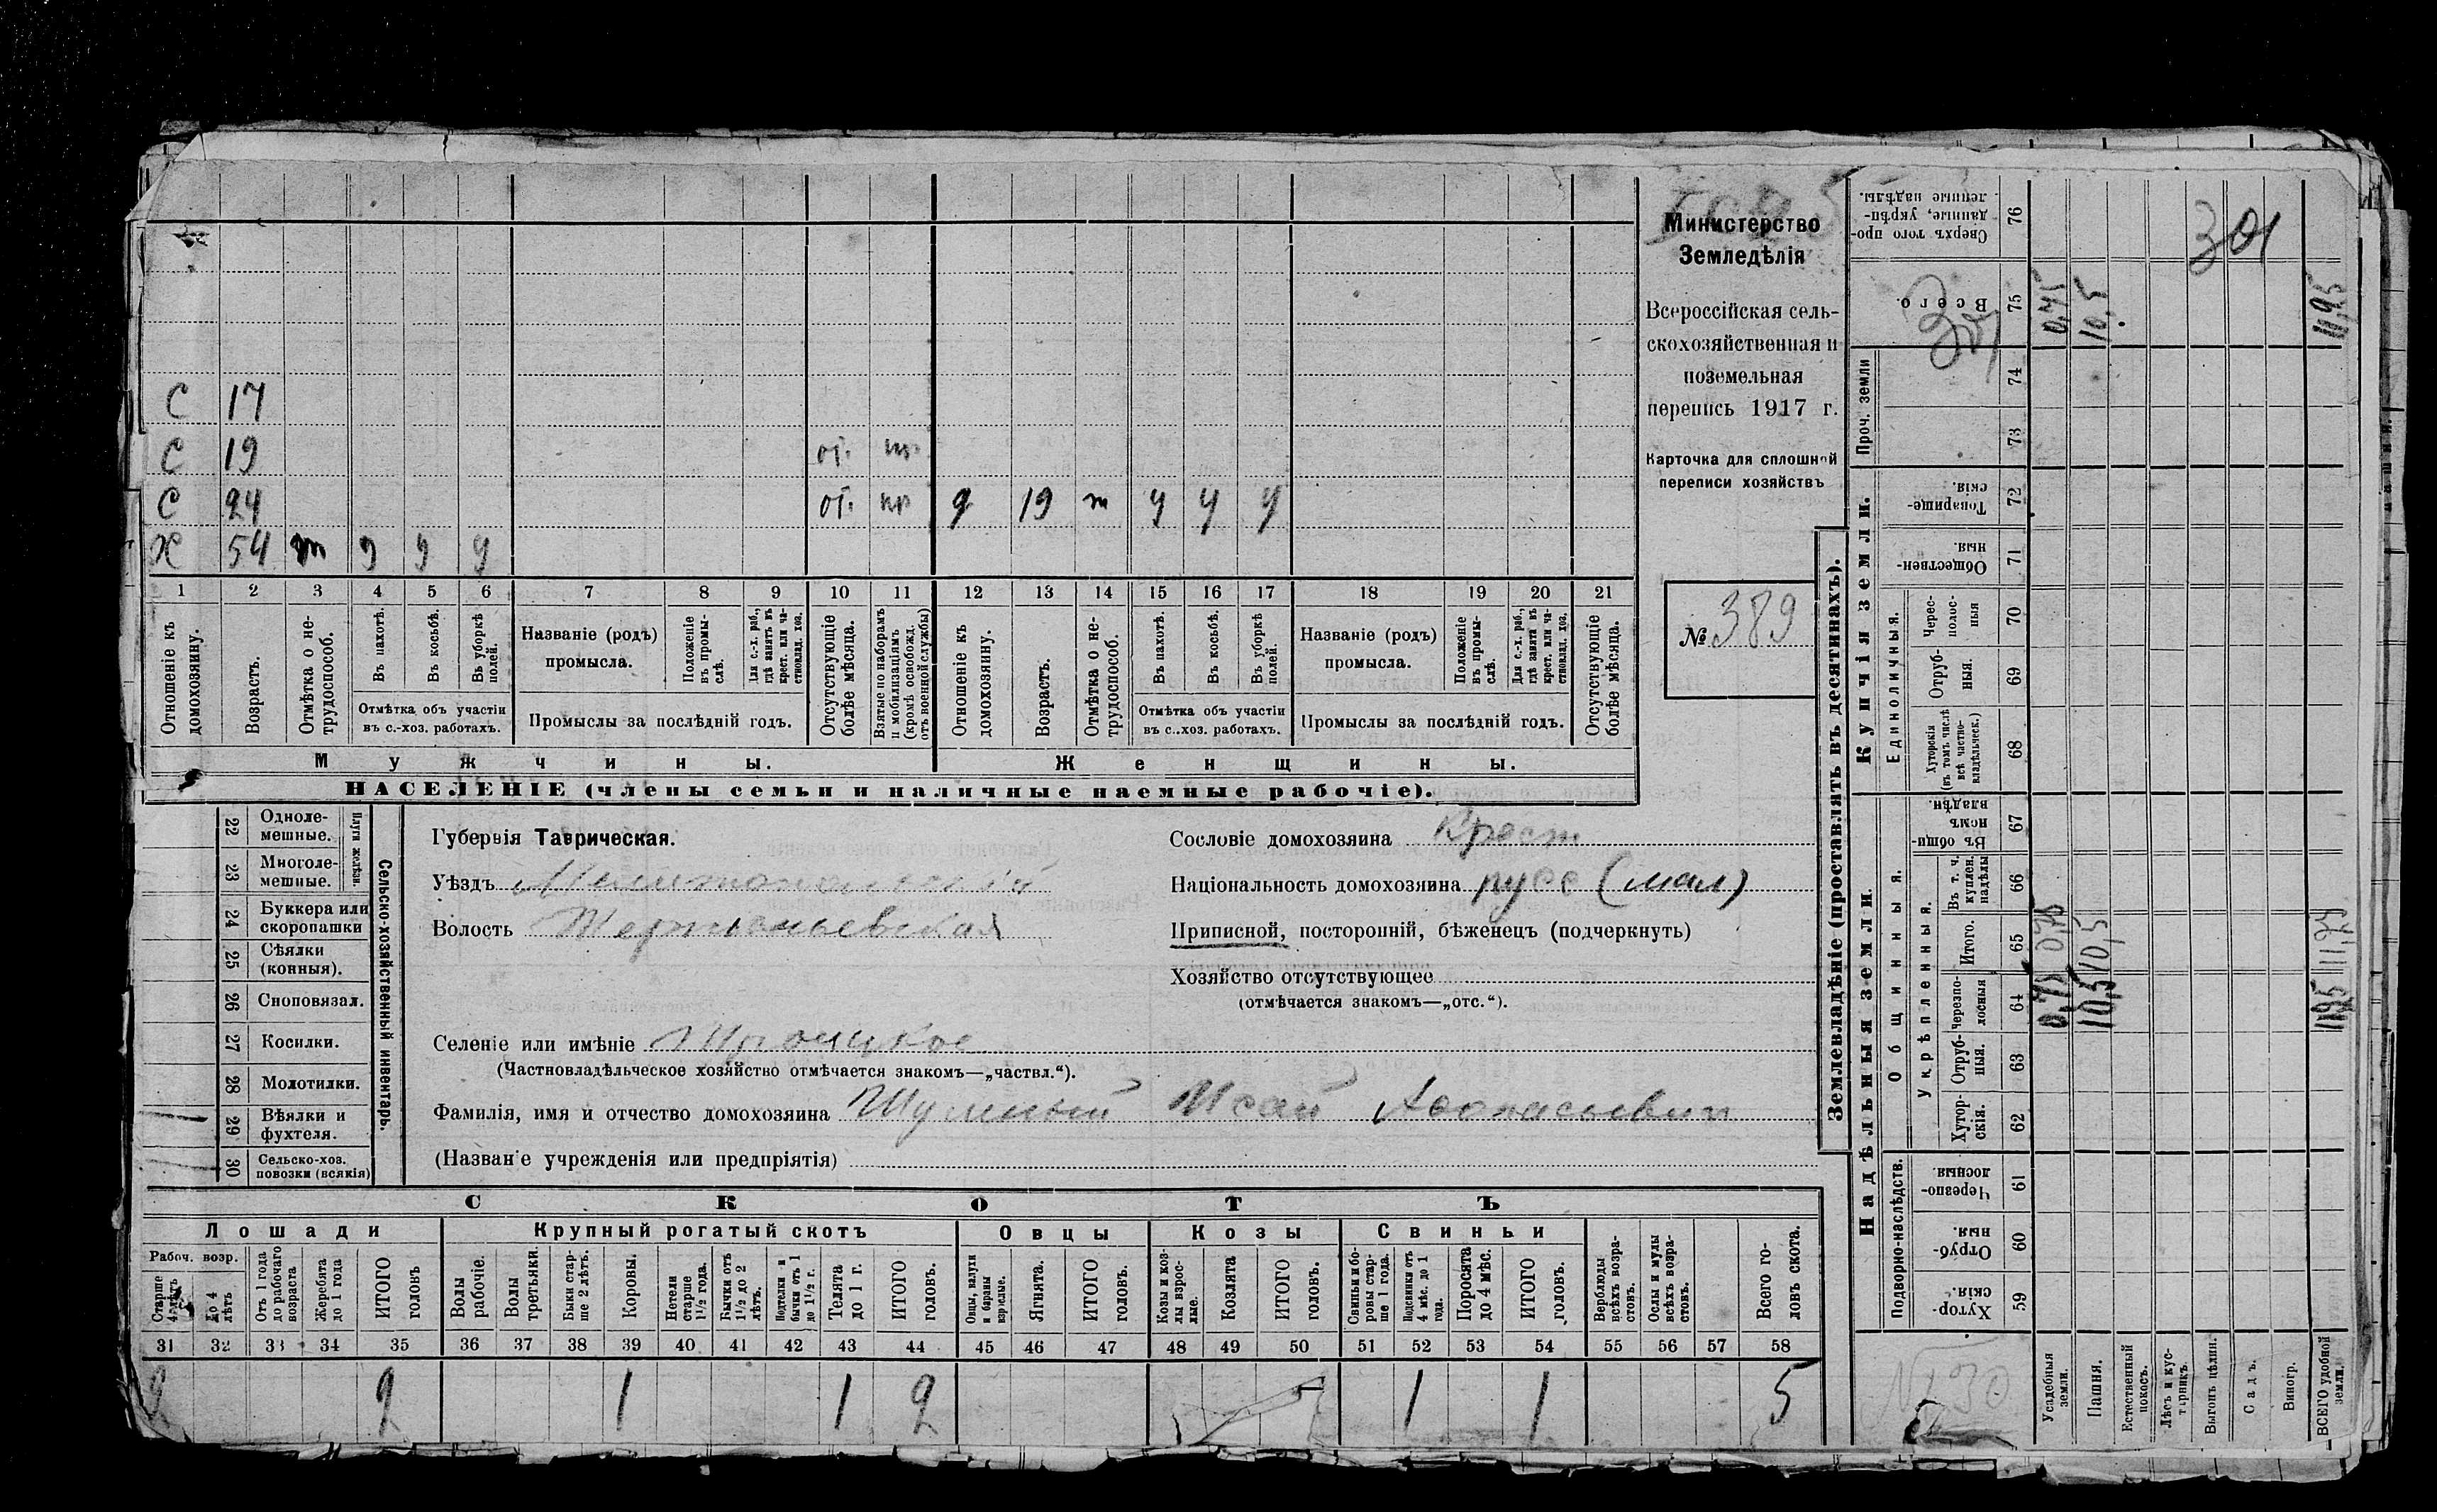 Министерство
Земледѣлія
Всероссійская сель-
скохозяйственная и
поземельная
перепись 1917 г.
Карточка для сплошной
переписи хозяйствъ
№ 389
С 17
С 19 от. пр.
С 24 от. пр д 19 т у у у
Х 54 т у у у
1 2 3 4 5 6 7 8 9 10 11 12 13 14 15 16 17 18 19 20 21
Отношеніе къ домохозяину.
Возрастъ.
Отмѣтка о не-трудоспособ.
Въ пахотѣ.
Въ косьбѣ.
Въ уборкѣ полей.
Отмѣтка объ участіи въ с.-хоз. работахъ.
Названіе (родъ) промысла.
Положеніе въ промы-слѣ.
Для с.-х. раб., гдѣ занятъ въ крест. или ча-стновлад. хоз.
Промыслы за послѣдній годъ.
Отсутствующіе болѣе мѣсяца.
Взятые по наборамъ и мобилизаціямъ (кромѣ освобожд. отъ военной службы)
Отношеніе къ домохозяину.
Возрастъ.
Отмѣтка о не-трудоспособ.
Въ пахотѣ.
Въ косьбѣ.
Въ уборкѣ полей.
Отмѣтка объ участіи въ с..хоз. работахъ.
Названіе (родъ) промысла.
Положеніе въ промы-слѣ.
Для с.-х. раб., гдѣ занятъ въ крест. или ча-стновлад. хоз.
Промыслы за послѣдній годъ.
Отсутствующіе болѣе мѣсяца.
Мужчины. Женщины.
НАСЕЛЕНІЕ (члены семьи и наличные наемные рабочіе).
Сельско-хозяйственный инвентарь.
Плуги желѣзн.
22 Одноле-мешные.
23 Многоле-мешные.
24 Буккера или скоропашки
25 Сѣялки (конныя).
26 Сноповязал.
27 Косилки.
28 Молотилки.
29 Вѣялки и фухтеля.
30 Сельско-хоз. повозки (всякія)
Губернія Таврическая.
Уѣздъ Мелитопольскій
Волость
Селеніе или имѣніе Троицкое
(Частновладѣльческое хозяйство отмѣчается знакомъ—„частвл.“).
Фамилія, имя и отчество домохозяина Шумный Исай Афонасьевич
(Названіе учрежденія или предпріятія)
Сословіе домохозяина Крест
Національность домохозяина русс (мал)
Приписной, посторонній, бѣженецъ (подчеркнуть)
Хозяйство отсутствующее
(отмѣчается знакомъ—„отс.“).
СКОТЪ
Лошади Крупный рогатый скотъ Овцы Козы Свиньи
Рабоч. возр.
Старше 4 лѣтъ
До 4 лѣтъ
Отъ 1 года до рабочаго возраста
Жеребята до 1 года
ИТОГО головъ
Волы рабочіе.
Волы третьяки.
Быки стар-ше 2 лѣтъ.
Коровы.
Нетели старше 1½ года.
Бычки отъ 1½ до 2 лѣтъ.
Подтелки и бычки отъ 1 до 1½ г.
Телята до 1 г.
ИТОГО головъ.
Овцы, валухи и бараны взрослые.
Ягнята.
ИТОГО головъ.
Козы и коз-лы взрос-лые.
Козлята
ИТОГО головъ.
Свиньи и бо-ровы стар-ше 1 года.
Подсвинки отъ 4 мѣс. до 1 года.
Поросята до 4 мѣс.
ИТОГО головъ.
Верблюды всѣхъ возра-стовъ.
Ослы и мулы всѣхъ возра-стовъ.
Всего го-ловъ скота.
31 32 33 34 35 36 37 38 39 40 41 42 43 44 45 46 47 48 49 50 51 52 53 54 55 56 57 58
2 2 1 1 2 1 1 5
Землевладѣніе (проставлять въ десятинахъ).
Надѣльныя земли.
Купчія земли.
Проч. земли
Подворно-наслѣдств.
Общинныя.
Укрѣпленныя.
Единоличныя.
Сверхъ того про-данные, укрѣп-ленные надѣлы. 76
Всего. 75
74
73
Товарище-скія. 72
Обществен-ныя. 71
Черес-полос-ныя 70
Отруб-ныя. 69
Хуторскія (въ томъ числѣ всѣ частно-владѣльческ.) 68
Въ общи-номъ владѣн. 67
Въ т. ч. куплен. надѣлы 66
Итого. 65
Черезпо-лосныя 64
Отруб-ныя. 63
Хутор-скія. 62
Черезпо-лосныя. 61
Отруб-ныя. 60
Хутор-скія. 59
Усадебныя земли. 0,75 0,75 0,75
Пашня. 10,5 10,5 10,5
Естественный покосъ.
Лѣсъ и кус-тарникъ.
Выгонъ цѣлин.
Садъ.
Виногр.
ВСЕГО удобной земли. 11,25
301
№ 30